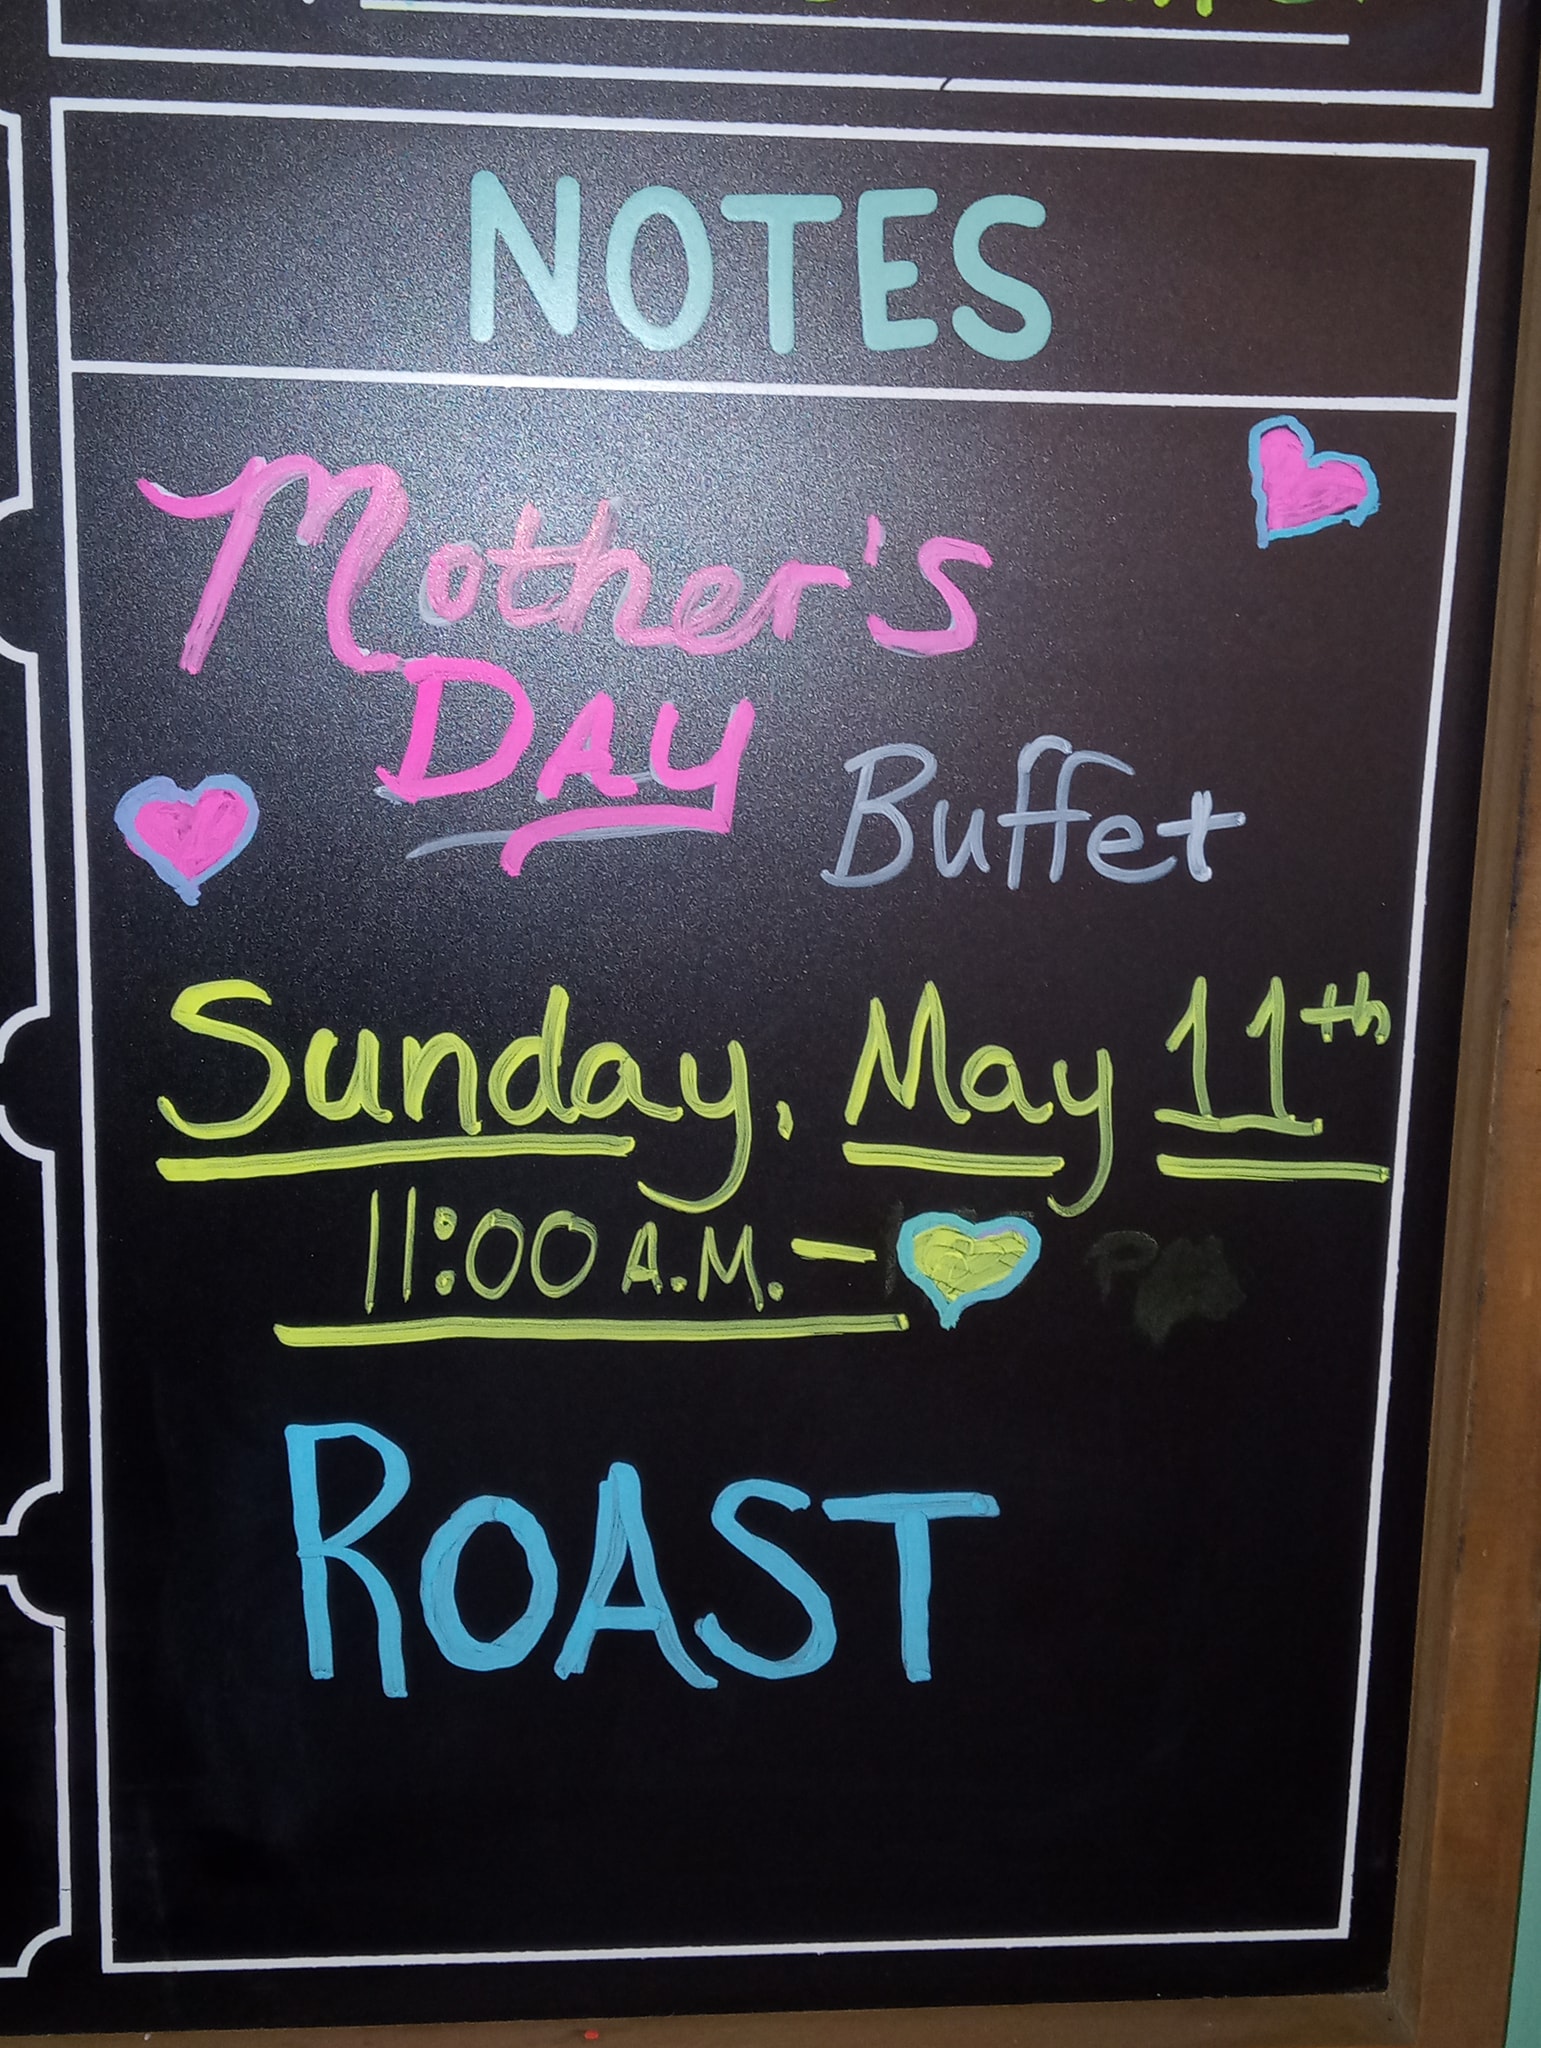 NOTES
Mother's
DAY Buffet
Sunday, May 11th
11:00 A.M. – PM
ROAST